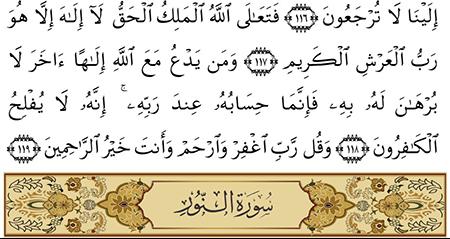 إِلَيْنَا لَا تُرْجَعُونَ ﴿١١٦﴾ فَتَعَـٰلَى ٱللَّهُ ٱلْمَلِكُ ٱلْحَقُّ لَآ إِلَـٰهَ إِلَّا هُوَ
رَبُّ ٱلْعَرْشِ ٱلْكَرِيمِ ﴿١١٧﴾ وَمَن يَدْعُ مَعَ ٱللَّهِ إِلَـٰهًا ءَاخَرَ لَا
بُرْهَـٰنَ لَهُۥ بِهِۦ فَإِنَّمَا حِسَابُهُۥ عِندَ رَبِّهِۦٓ ۚ إِنَّهُۥ لَا يُفْلِحُ
ٱلْكَـٰفِرُونَ ﴿١١٨﴾ وَقُل رَّبِّ ٱغْفِرْ وَٱرْحَمْ وَأَنتَ خَيْرُ ٱلرَّٰحِمِينَ ﴿١١٩﴾
سُورَةُ النُّورِ